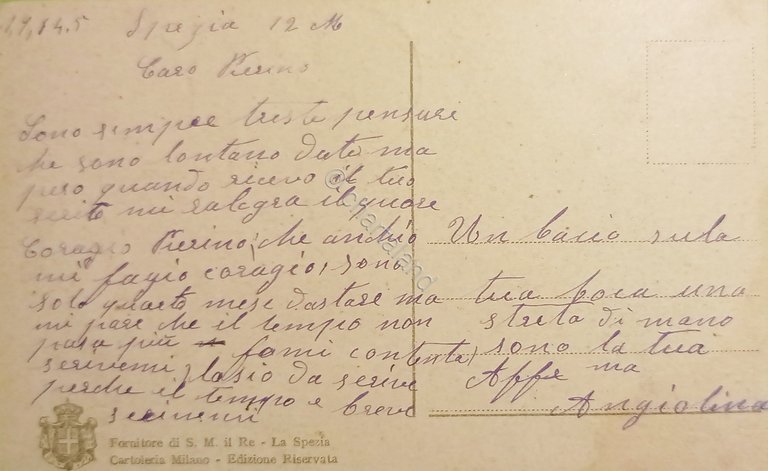 Spezia 12 M
Caro Pierino
Sono sempre triste pensare
che sono lontano date ma
pero quando ricevo il tuo
scrito mi ralegra il quore
Coragio Pierino, che anchio
mi fagio coragio, sono
solo quarto mese dastare ma
mi pare che il tempo non
pasa più fami contenta,
scrivemi, lasio da scrive
perche il tempo e breve
scrivemi
Un bacio sula
tua boca una
streta di mano
sono la tua
Affe ma
Angiolina
Fornitore di S. M. il Re - La Spezia
Cartoleria Milano - Edizione Riservata
© cartaland